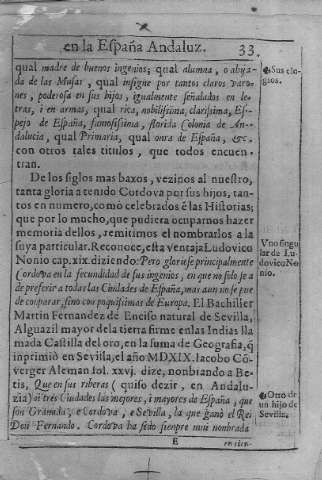 en la España Andaluz. 33
qual madre de buenos ingenios; qual alumna, o abija
da de las Musas, qual insigne por tantos claros varo-
nes, poderosa en sus hijos, igualmente señalados en le-
tras, i en armas, qual rica, nobilissima, clarissima, Es-
pejo de España, famosissima, florida Colonia de An-
dalucia, qual Primaria, qual onra de España, &c.
con otros tales titulos, que todos encuen-
tran.
De los siglos mas baxos, vezinos al nuestro,
tanta gloria a tenido Cordova por sus hijos, tan-
tos en numero, como celebrados é las Historias;
que por lo mucho, que pudiera ocuparnos hazer
memoria dellos, remitimos el nombrarlos a la
suya particular. Reconoce, esta ventaja Ludovico
Nonio cap. ix. diziendo: Pero gloriese principalmente
Cordova en la fecundidad de sus ingenios, en que no solo se a
de preferir a todas las Ciudades de España, mas aun no se pue
de comparar, sino con poquissimas de Europa. El Bachiller
Martin Fernandez de Enciso natural de Sevilla,
Alguazil mayor de la tierra firme en las Indias lla
mada Castilla del oro, en la suma de Geografia, q̃
inprimió en Sevilla, el año MDXIX. Iacobo Cõ-
verger Aleman fol. xxvj. dize, nonbrando a Be-
tis, Que en sus riberas (quiso dezir, en Andalu-
zia) ai tres Ciudades las mejores, i mayores de España, que
son Granada, e Cordova, e Sevilla, la que ganó el Rei
Don Fernando. Cordova ha sido sienpre mui nonbrada
E en cien-
Sus elo-
gios.
Vno singu
lar de Lu
dovico No
nio.
Otro de
un hijo de
Sevilla.